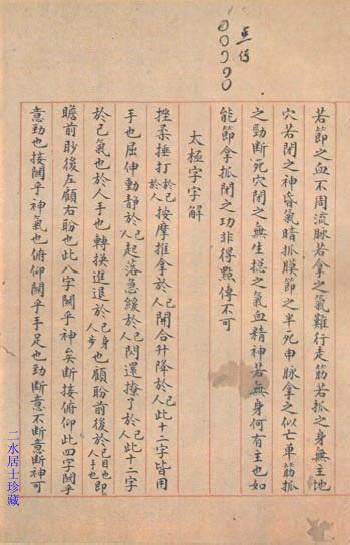 若節之血不周流脉若拿之氣難行走筋若抓之身無主地
穴若閉之神昏氣暗抓膜節之半死申脉拿之似亡單筋抓
之勁斷死穴閉之無生揔之氣血精神若無身何有主也如
能節拿抓閉之功非得點傳不可
太極字字解
挫柔捶打於己於人按摩推拿於己人開合升降於己人此十二字皆用
手也屈伸動靜於己人起落急緩於己人閃還撩了於己人此十二字
於己氣也於人手也轉換進退於己身也人步也顧盼前後於己目也人手也即
瞻前眇後左顧右盼也此八字關乎神矣斷接俯仰此四字關乎
意勁也接關乎神氣也俯仰關乎手足也勁斷意不斷意斷神可
二水居士珍藏